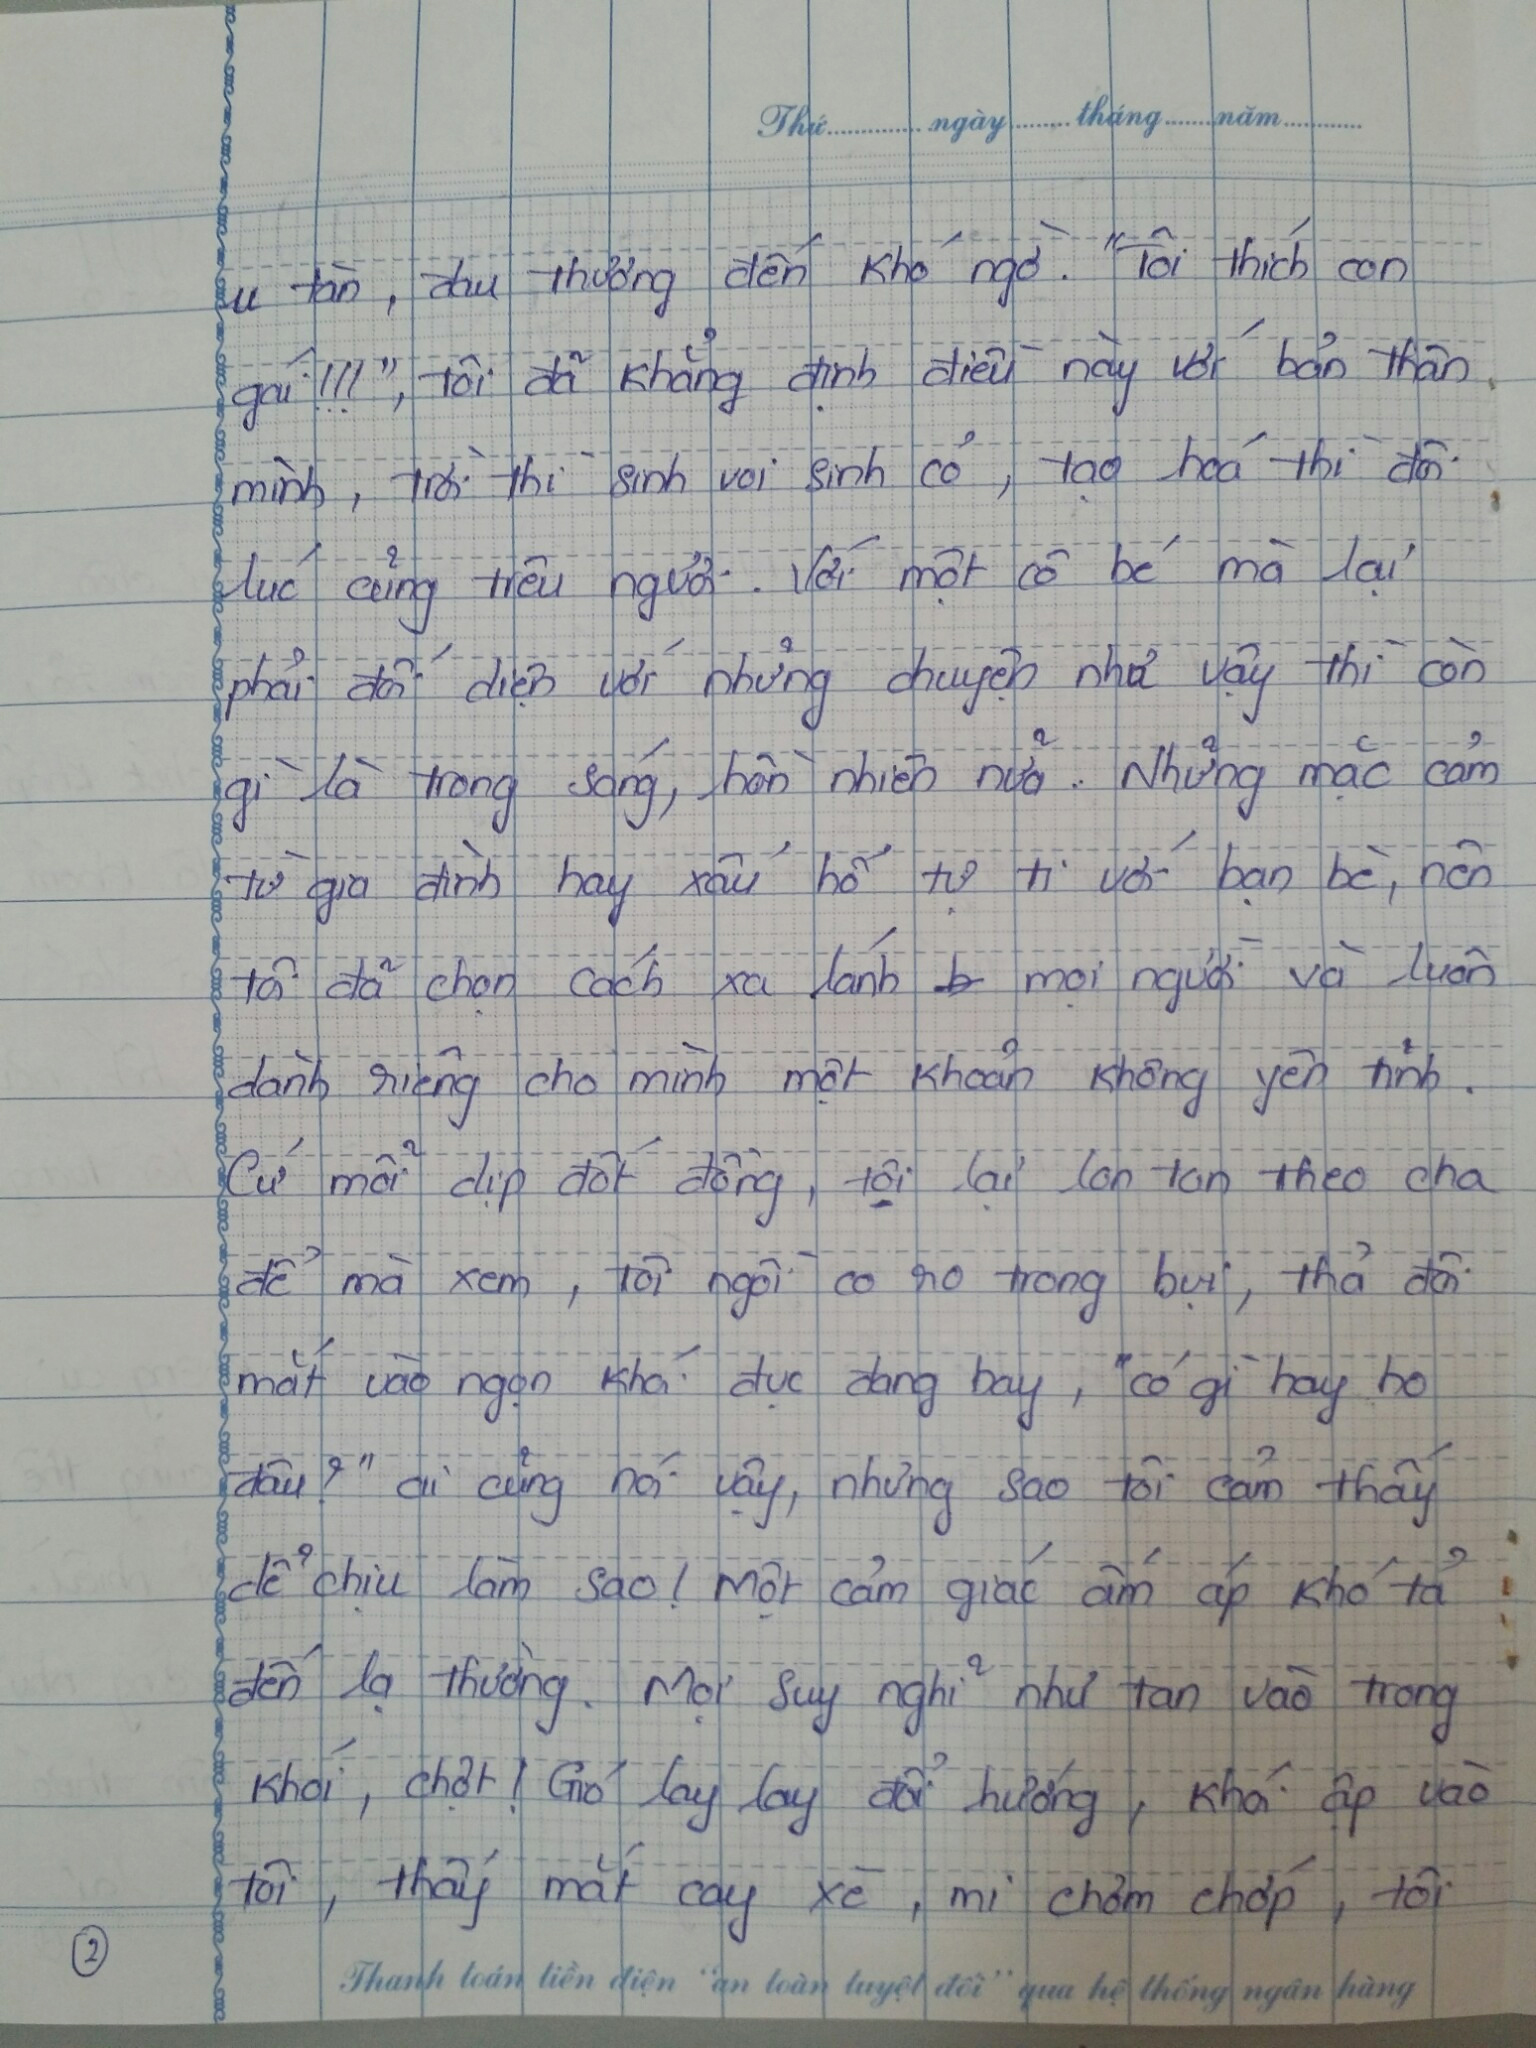 Thứ............. ngày ........tháng.......năm............
u tàn, đau thương đến khó ngờ. "Tôi thích con
gái!!!", tôi đã khẳng định điều này với bản thân
mình, trời thì sinh voi sinh cỏ, tạo hoá thì đôi
lúc củng trêu người. Với một cô bé mà lại
phải đối diện với nhửng chuyện như vậy thì còn
gì là trong sáng, hồn nhiên nửa. Nhửng mặc cảm
từ gia đình hay xấu hổ tự ti với bạn bè, nên
tôi đã chọn cách xa lánh mọi người và luôn
dành riêng cho mình một khoản không yên tỉnh.
Cứ mổi dịp đốt đồng, tôi lại lon ton theo cha
để mà xem, tôi ngồi co ro trong bụi, thả đôi
mắt vào ngọn khói đục đang bay, "có gì hay ho
đâu?" ai củng nói vậy, nhưng sao tôi cảm thấy
dể chịu làm sao! Một cảm giác ấm áp khó tả
đến lạ thường. Mọi suy nghỉ như tan vào trong
khói, chợt! Gió lay lay đổi hướng, khói ập vào
tôi, thấy mắt cay xè, mi chớm chớp, tôi
2
Thanh toán tiền điện "an toàn tuyệt đối" qua hệ thống ngân hàng